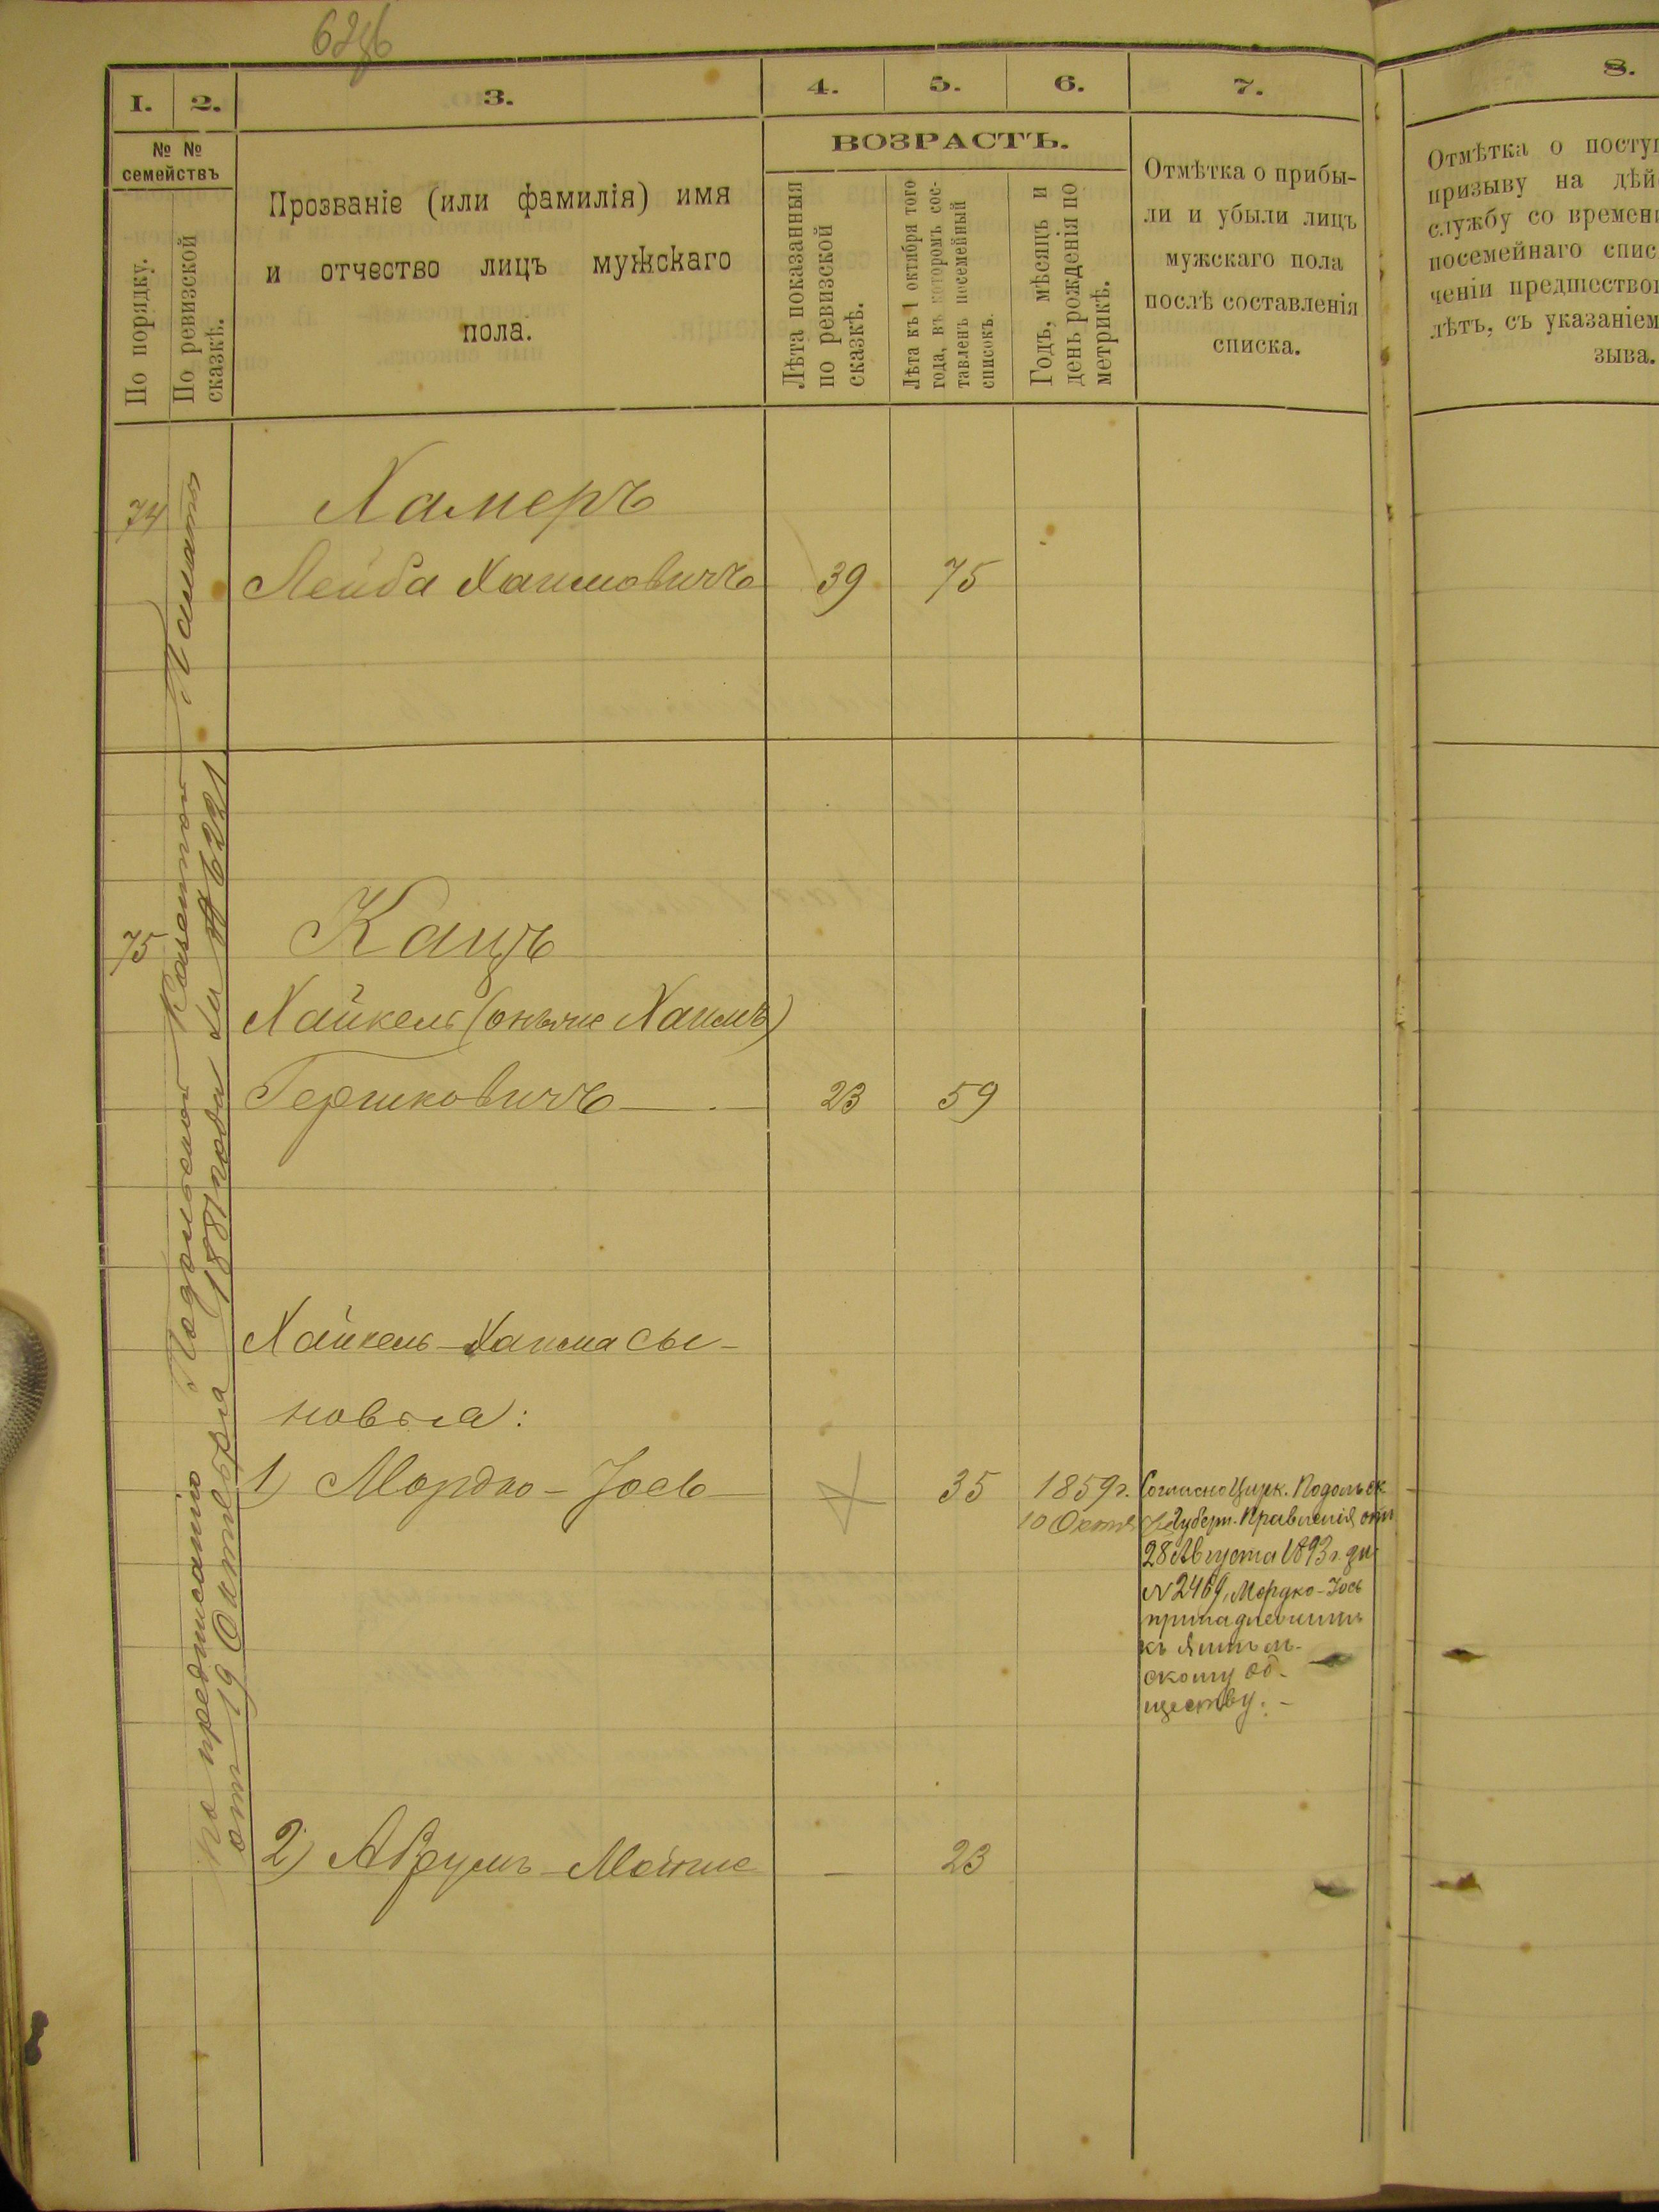 1.
2.
3.
4.
5.
6.
7.
8.
№ №
семействъ
По порядку.
По ревизской
сказкѣ.
Прозваніе (или фамилія) имя
и отчество лицъ мужскаго
пола.
ВОЗРАСТЪ.
Лѣта показанныя
по ревизской
сказкѣ.
Лѣта къ 1 октября того
года, въ которомъ сос-
тавленъ посемейный
списокъ.
Годъ, мѣсяцъ и
день рожденія по
метрикѣ.
Отмѣтка о прибы-
ли и убыли лицъ
мужскаго пола
послѣ составленія
списка.
Отмѣтка о
призыву на
службу со
посемейнаго
ченіи
лѣтъ, съ
зыва.
74
Хамеръ
Лейба Хаимовичъ 39 75
75
Кацъ
Хайкель (онъ же Хаимъ)
Гершковичъ 23 59
Хайкель-Хаима сы-
новья:
1) Мордко-Іось 35 1859 г.
10
Согласно Цирк. Подольск
Губерн. Правленія отъ
28 Августа 1893 г. за
№ 2469, Мордко-Іось
къ
скому об-
ществу. -
2) Аврумъ-Мойше - 23
По предписанію Подольской Казенной Палаты
отъ 19 Октября 1881 года за № 6221